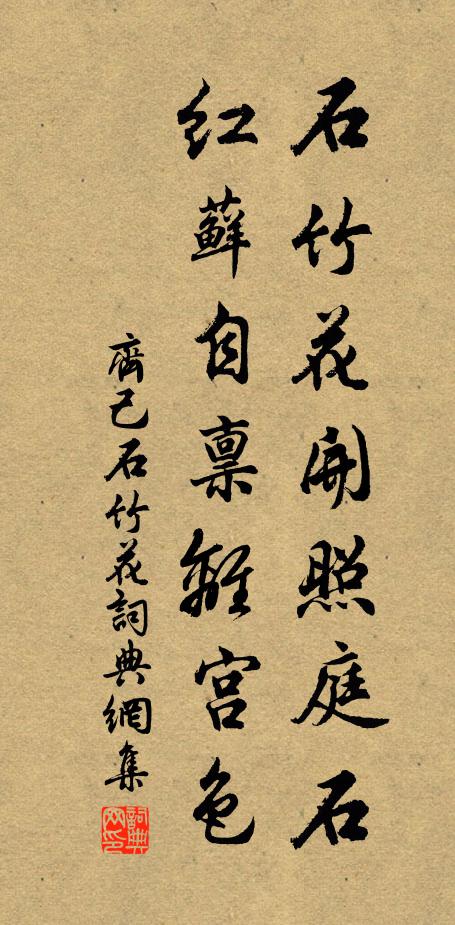 石竹花開照庭石
紅蘚自稟離宮色
齊己石竹花詞典網集
詞典網印